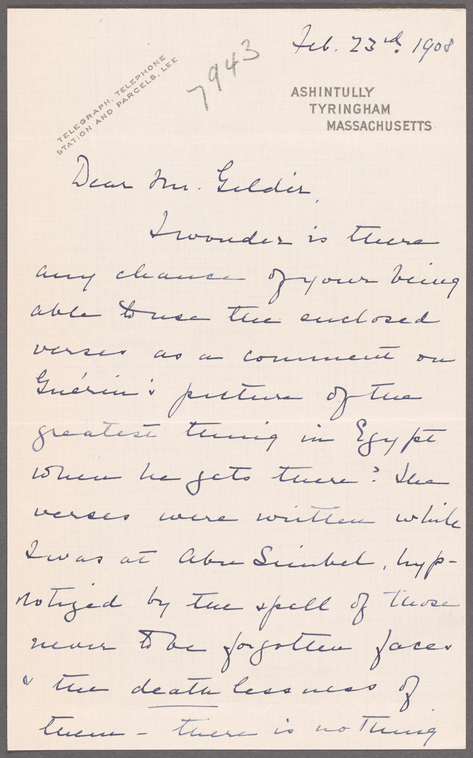 Feb. 23rd, 1908
7943
TELEGRAPH, TELEPHONE
STATION AND PARCELS, LEE
ASHINTULLY
TYRINGHAM
MASSACHUSETTS
Dear Mr. Gilder,
I wonder is there
any chance of your being
able to use the enclosed
verses as a comment on
Guérin's picture of the
greatest thing in Egypt
when he gets there? The
verses were written while
I was at Abu Simbel, hyp-
notized by the spell of those
never to be forgotten faces
& the deathlessness of
them - there is nothing